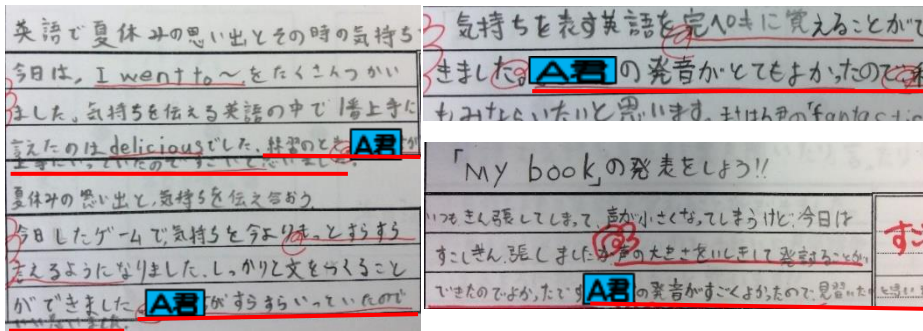 英語で夏休みの思い出とその時の気持ち
今日は、I went to~をたくさんつかい
ました。気持ちを伝える英語の中で1番上手に
言えたのはdeliciousでした。練習のとき A君が
上手にいっていたので すごいと思いました。
夏休みの思い出と、気持ちを伝え合おう。
今日したゲームで、気持ちを今よりもっとすらすら
言えるようになりました。しっかりと文をつくること
ができました。A君がすらすらいっていたので
気持ちを表す英語を完ペキに覚えることがで
きました。A君の発音がとてもよかったので
もみならいたいと思います。
「My book」の発表をしよう!!
いつもきん張してしまって、声が小さくなってしまうけど、今日は
すこしきん張しましたが声の大きさをいしきして発表することが
できたのでよかったです A君の発音がすごくよかったので、見習いた
すご